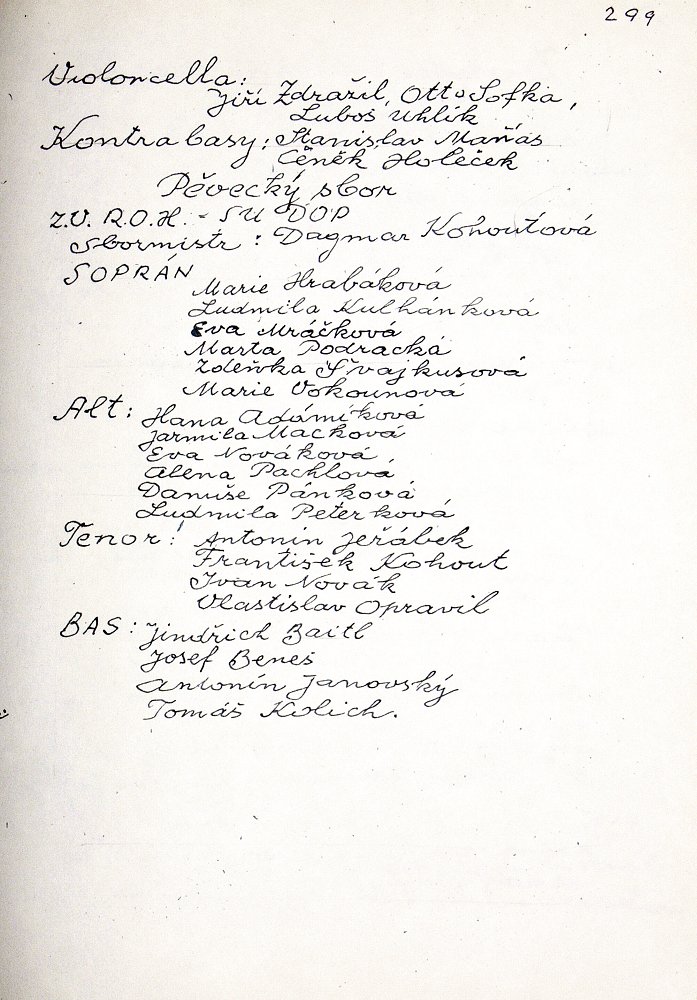 299
Violoncella:
Jiří Zdražil, Otto Sofka,
Luboš Uhlík
Kontrabasy: Stanislav Maňás
Čeněk Holeček
Pěvecký sbor
Z.V. R.O.H. - SU DOP
Sbormistr: Dagmar Kohoutová
SOPRÁN
Marie Hrabáková
Ludmila Kulhánková
Eva Mráčková
Marta Podracká
Zdeňka Švajkusová
Marie Vokounová
Alt: Hana Adámíková
Jarmila Macková
Eva Nováková
Alena Pachlová
Danuše Pánková
Ludmila Peterková
Tenor: Antonín Jeřábek
František Kohout
Ivan Novák
Vlastislav Opravil
BAS: Jindřich Baitl
Josef Beneš
Antonín Janovský
Tomáš Kolich.